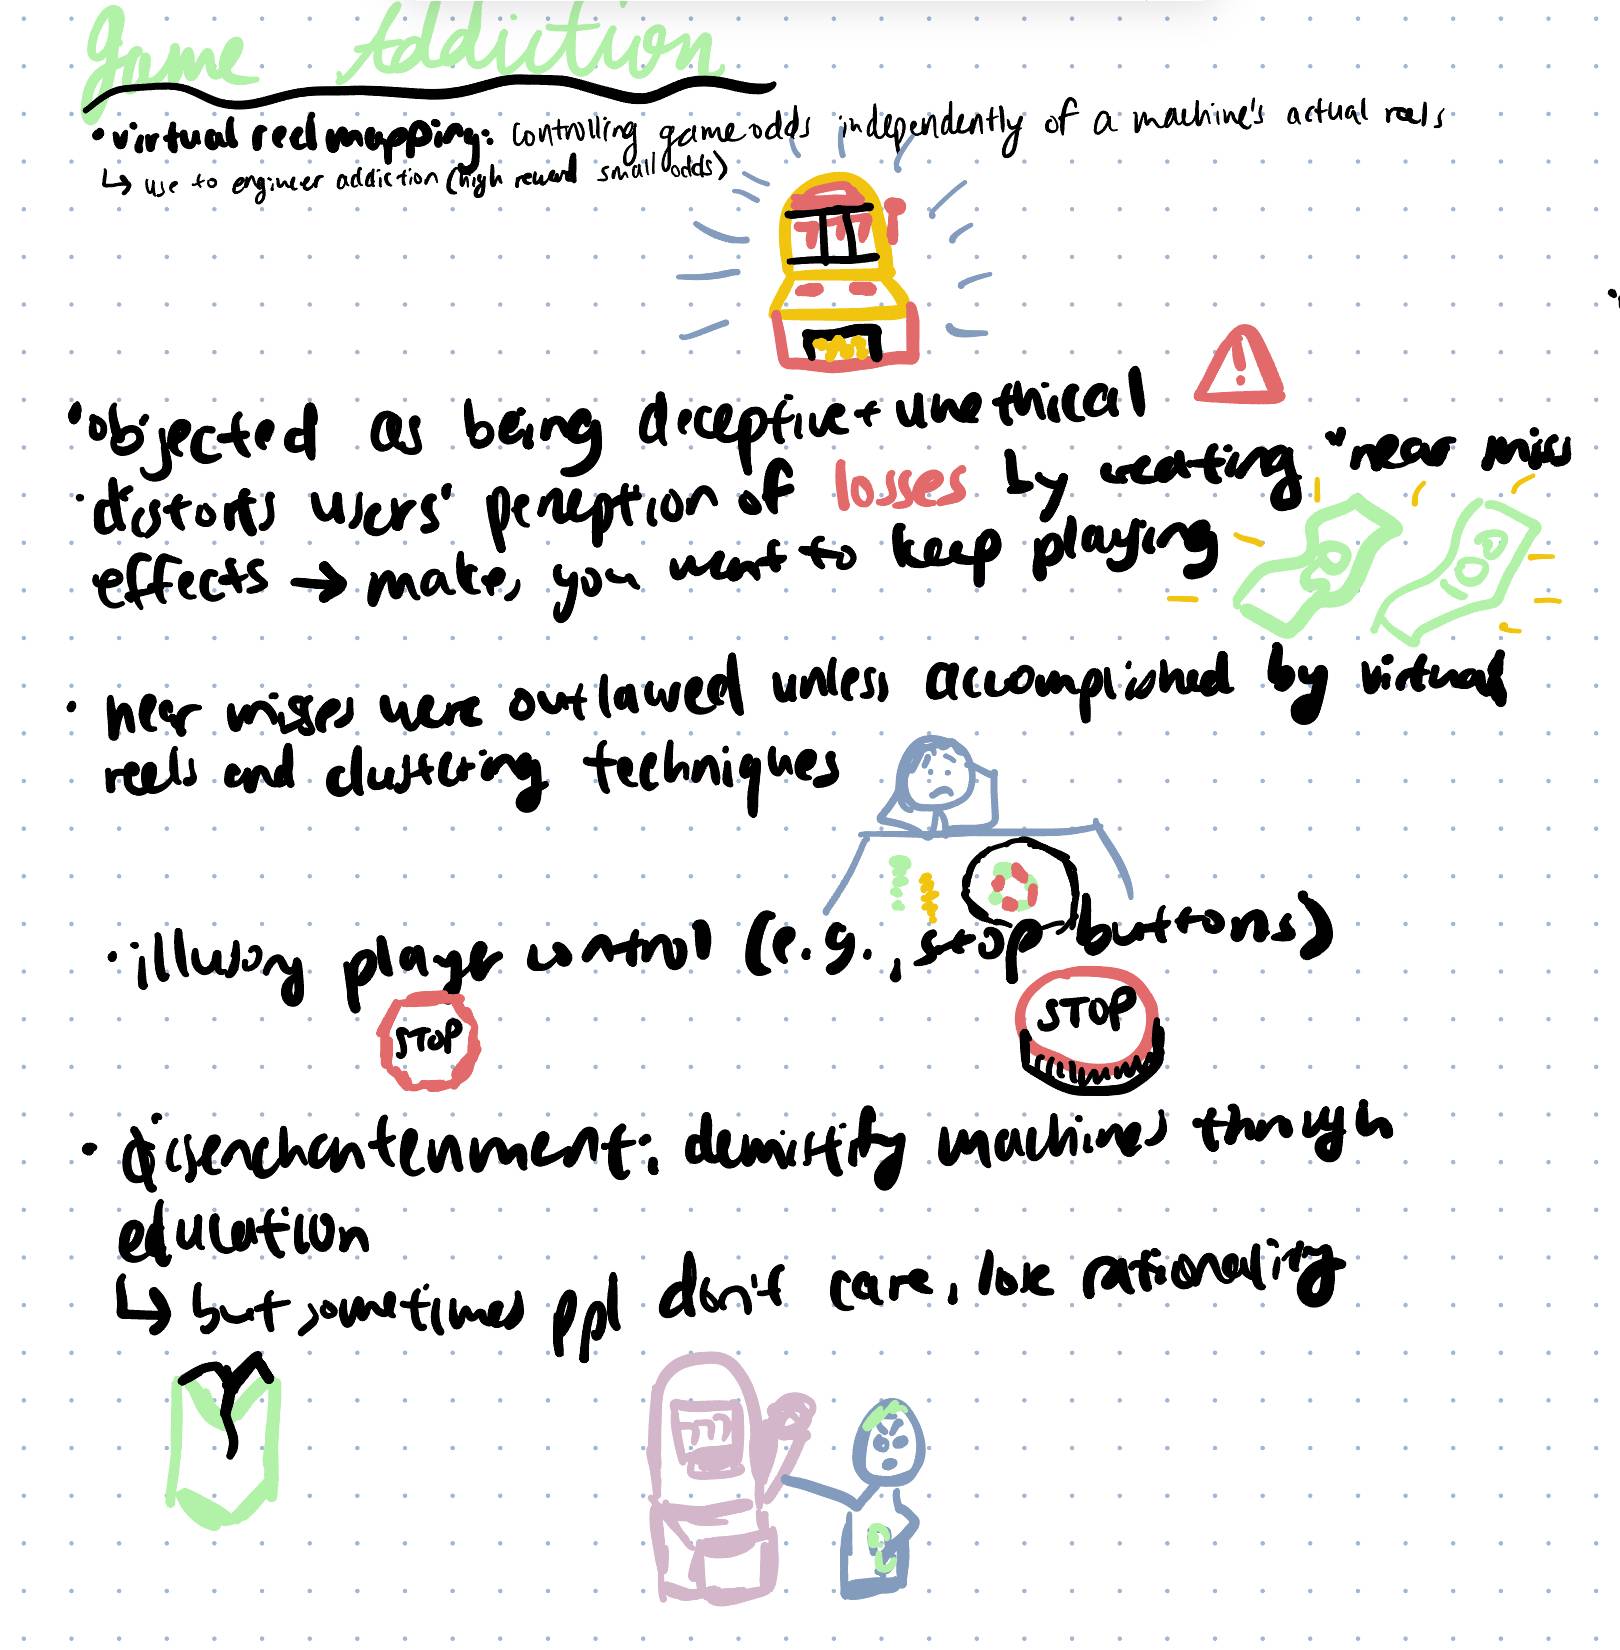 Game Addiction
• virtual reel mapping: controlling game odds independently of a machine's actual reels
↳ use to engineer addiction (high reward small odds)
777
!
• objected as being deceptive + unethical
• distorts users' perception of losses by creating "near miss
effects → make, you want to keep playing
• near misses were outlawed unless accomplished by virtual
reels and clustering techniques
• illusory player control (e.g., stop buttons)
STOP
STOP
• disenchantenment: demistify machines through
education
↳ but sometimes ppl don't care, lose rationality
777